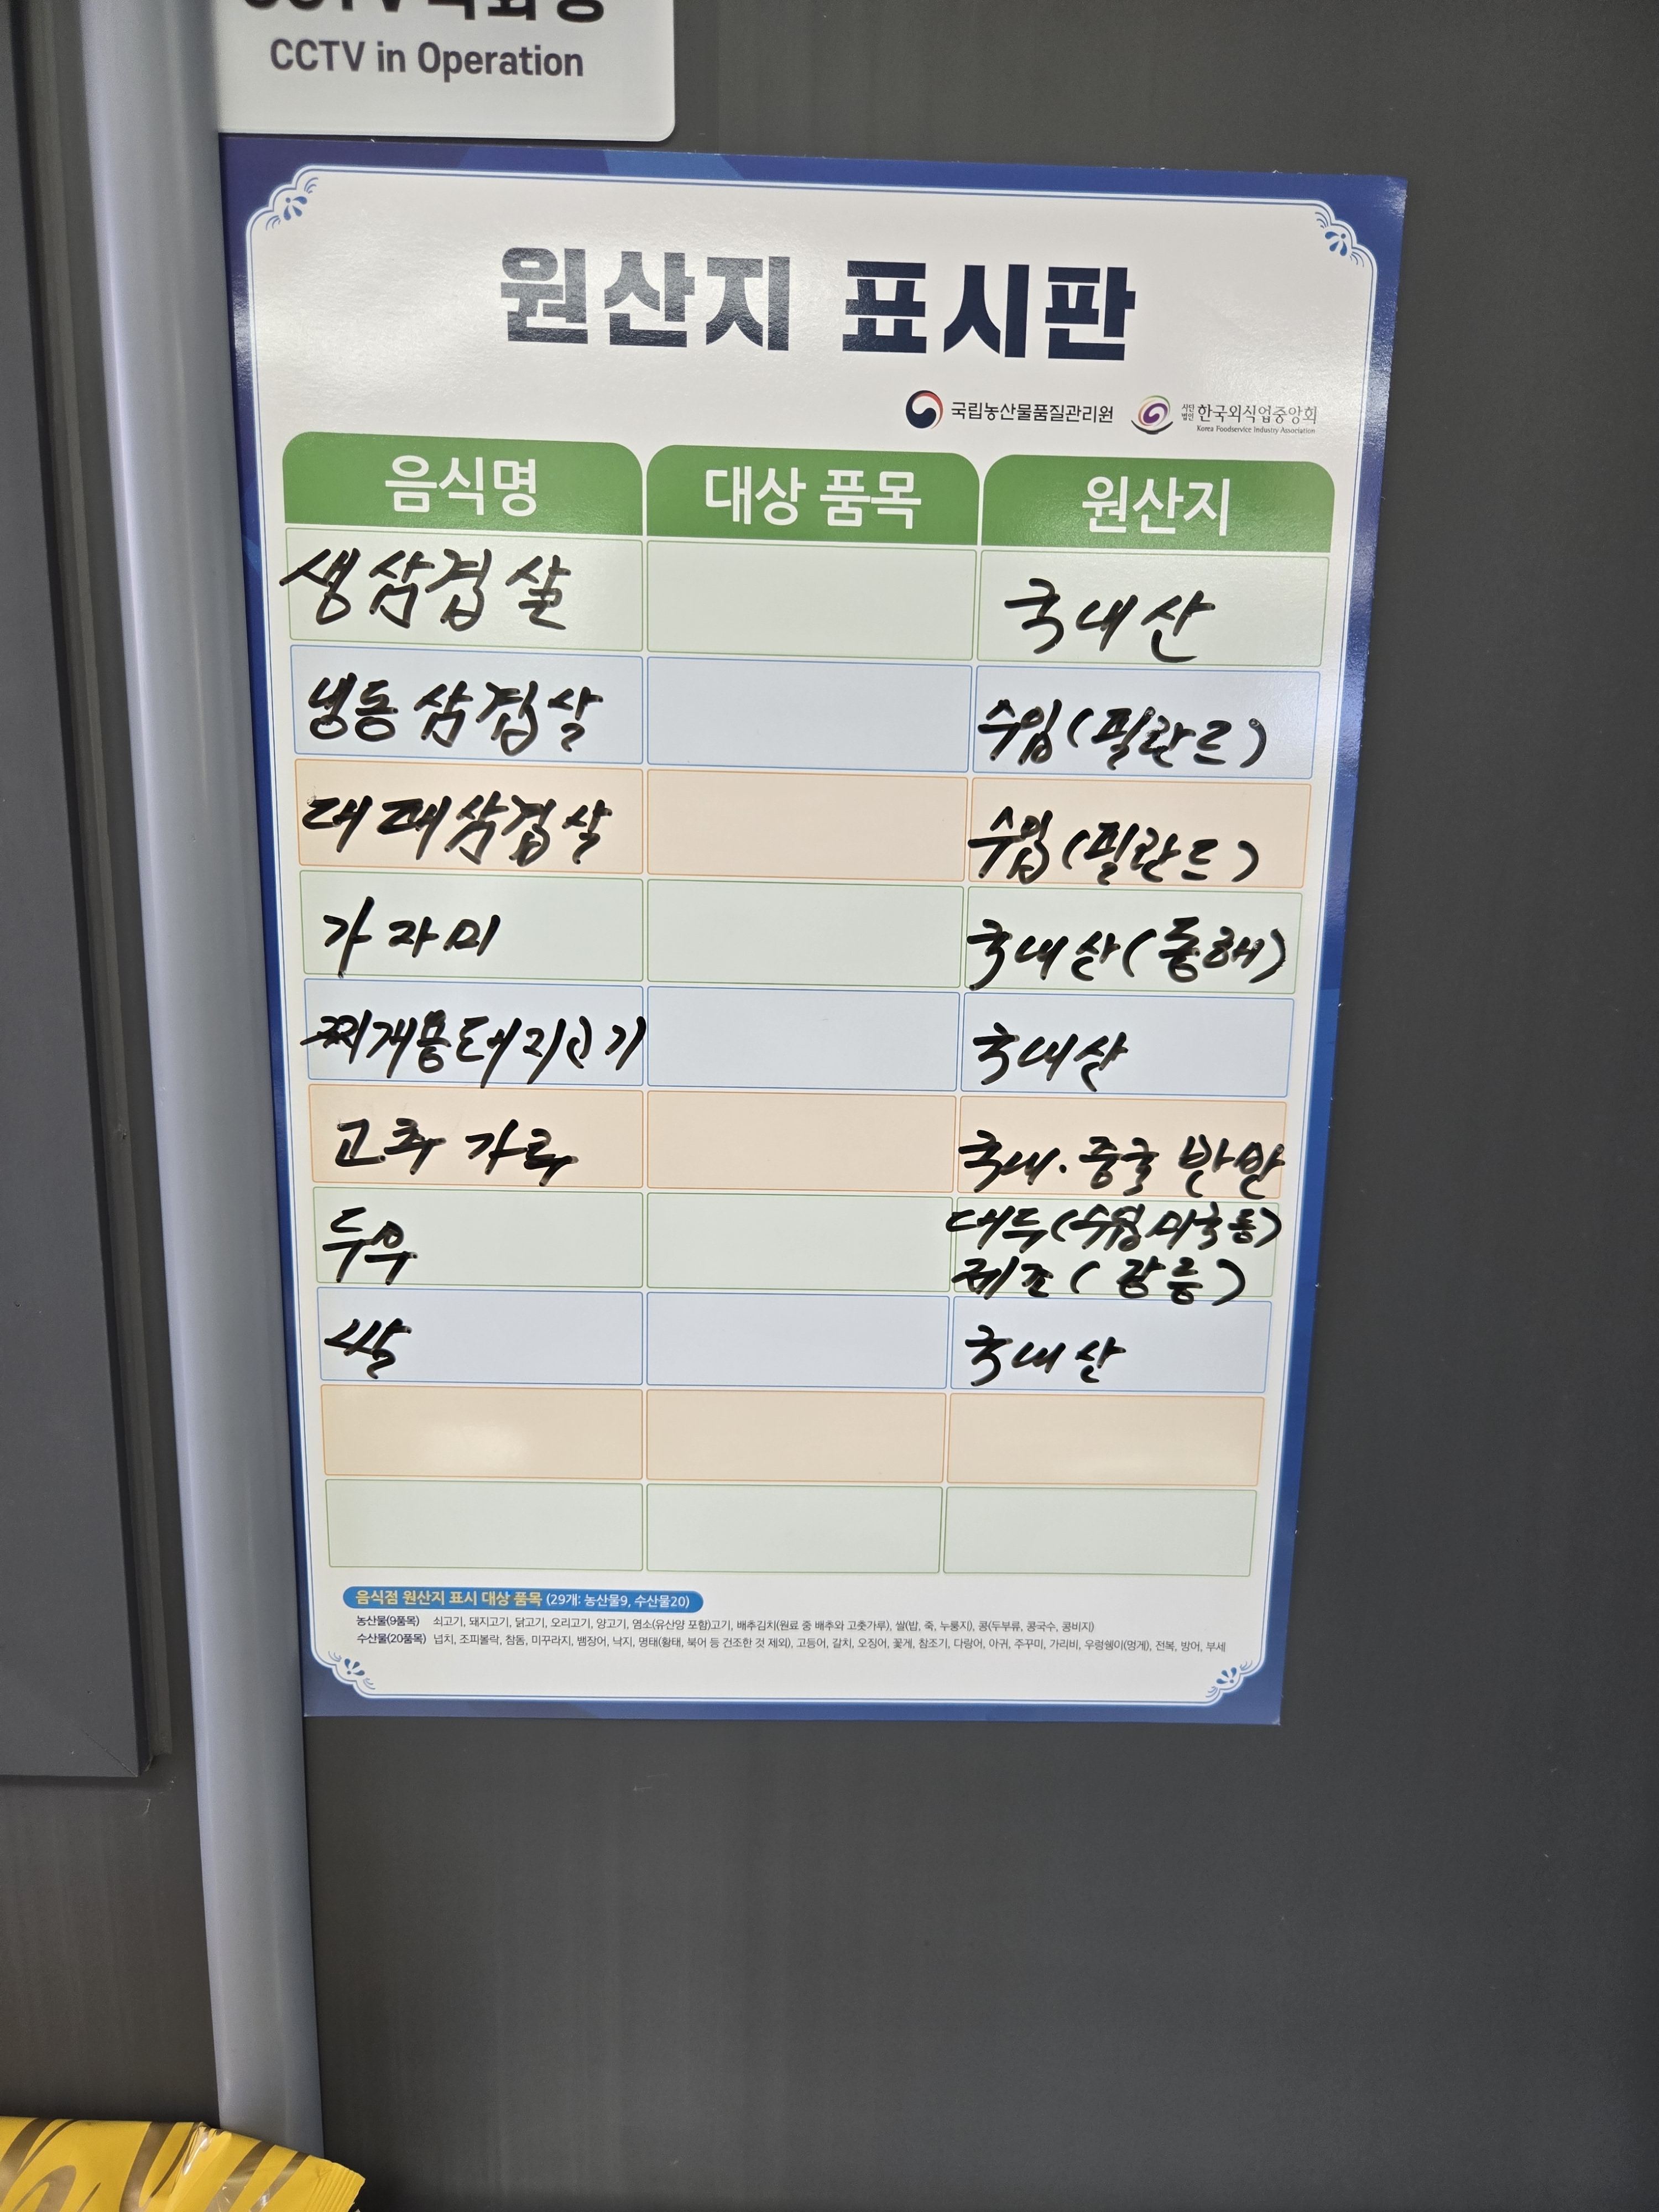 CCTV in Operation
원산지 표시판
국립농산물품질관리원 사단법인 한국외식업중앙회
Korea Foodservice Industry Association
음식명 대상 품목 원산지
생삼겹살 국내산
냉동삼겹살 수입(필란드)
대패삼겹살 수입(필란드)
가자미 국내산(동해)
찌개용돼지고기 국내산
고추가루 국내.중국 반반
두부 대두(수입 미국 등)
제조(강릉)
쌀 국내산
음식점 원산지 표시 대상 품목 (29개: 농산물9, 수산물20)
농산물(9품목) 쇠고기, 돼지고기, 닭고기, 오리고기, 양고기, 염소(유산양 포함)고기, 배추김치(원료 중 배추와 고춧가루), 쌀(밥, 죽, 누룽지), 콩(두부류, 콩국수, 콩비지)
수산물(20품목) 넙치, 조피볼락, 참돔, 미꾸라지, 뱀장어, 낙지, 명태(황태, 북어 등 건조한 것 제외), 고등어, 갈치, 오징어, 꽃게, 참조기, 다랑어, 아귀, 주꾸미, 가리비, 우렁쉥이(멍게), 전복, 방어, 부세